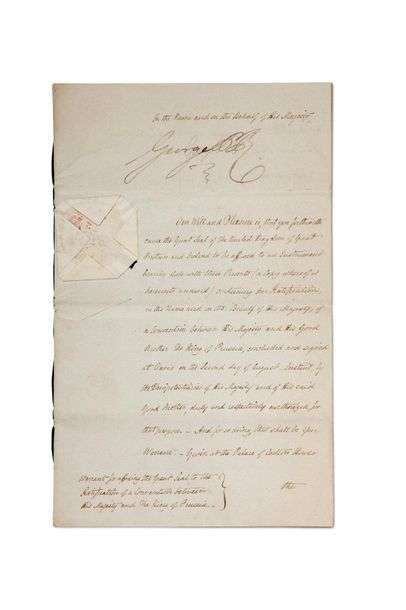 In the Name and on the Behalf of His Majesty
George P R
Our Will and Pleasure is, that you forthwith
cause the Great Seal of the United Kingdom of Great
Britain and Ireland to be affixed to an Instrument
bearing date with these Presents (a Copy whereof is
hereunto annexed) containing Our Ratification
in the Name and on the Behalf of His Majesty, of
a Convention between His Majesty and His Good
Brother The King of Prussia, concluded and signed
at Paris on the Second day of August Instant by
the Plenipotentiaries of His Majesty and of His said
Good Brother duly and respectively authorized for
that purpose. – And for so doing this shall be Your
Warrant. – Given at the Palace of Carlton House
the
Warrant for affixing the Great Seal to the
Ratification of a Convention between
His Majesty and The King of Prussia. –